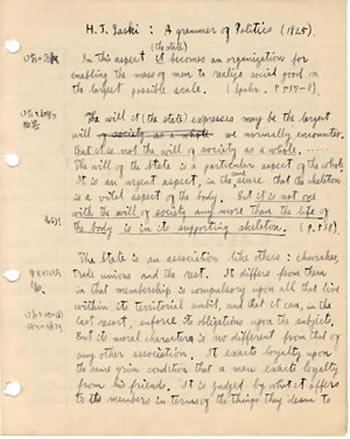 H. J. Laski : A grammar of Politics (1925).
(the state)
In this aspect it becomes an organization for
enabling the mass of men to realize social good on
the largest possible scale.
The will it (the state) expresses may be the largest
will of society as a whole we normally encounter.
But it is not the will of society as a whole. .....
The will of the State is a particular aspect of the whole.
It is an urgent aspect, in the sense that the skeleton
is a vital aspect of the body. But it is not one
with the will of society any more than the life of
the body is in its supporting skeleton.
The State is an association like others : churches,
trade unions and the rest. It differs from them
in that membership is compulsory upon all that live
within its territorial ambit, and that it can, in the
last resort, enforce its obligations upon the subjects.
But its moral character is no different from that of
any other association. It exact loyalty upon
the same grim condition that a man exact loyalty
from his friends. It is judged by what it offers
to its members in terms of the things they deem to